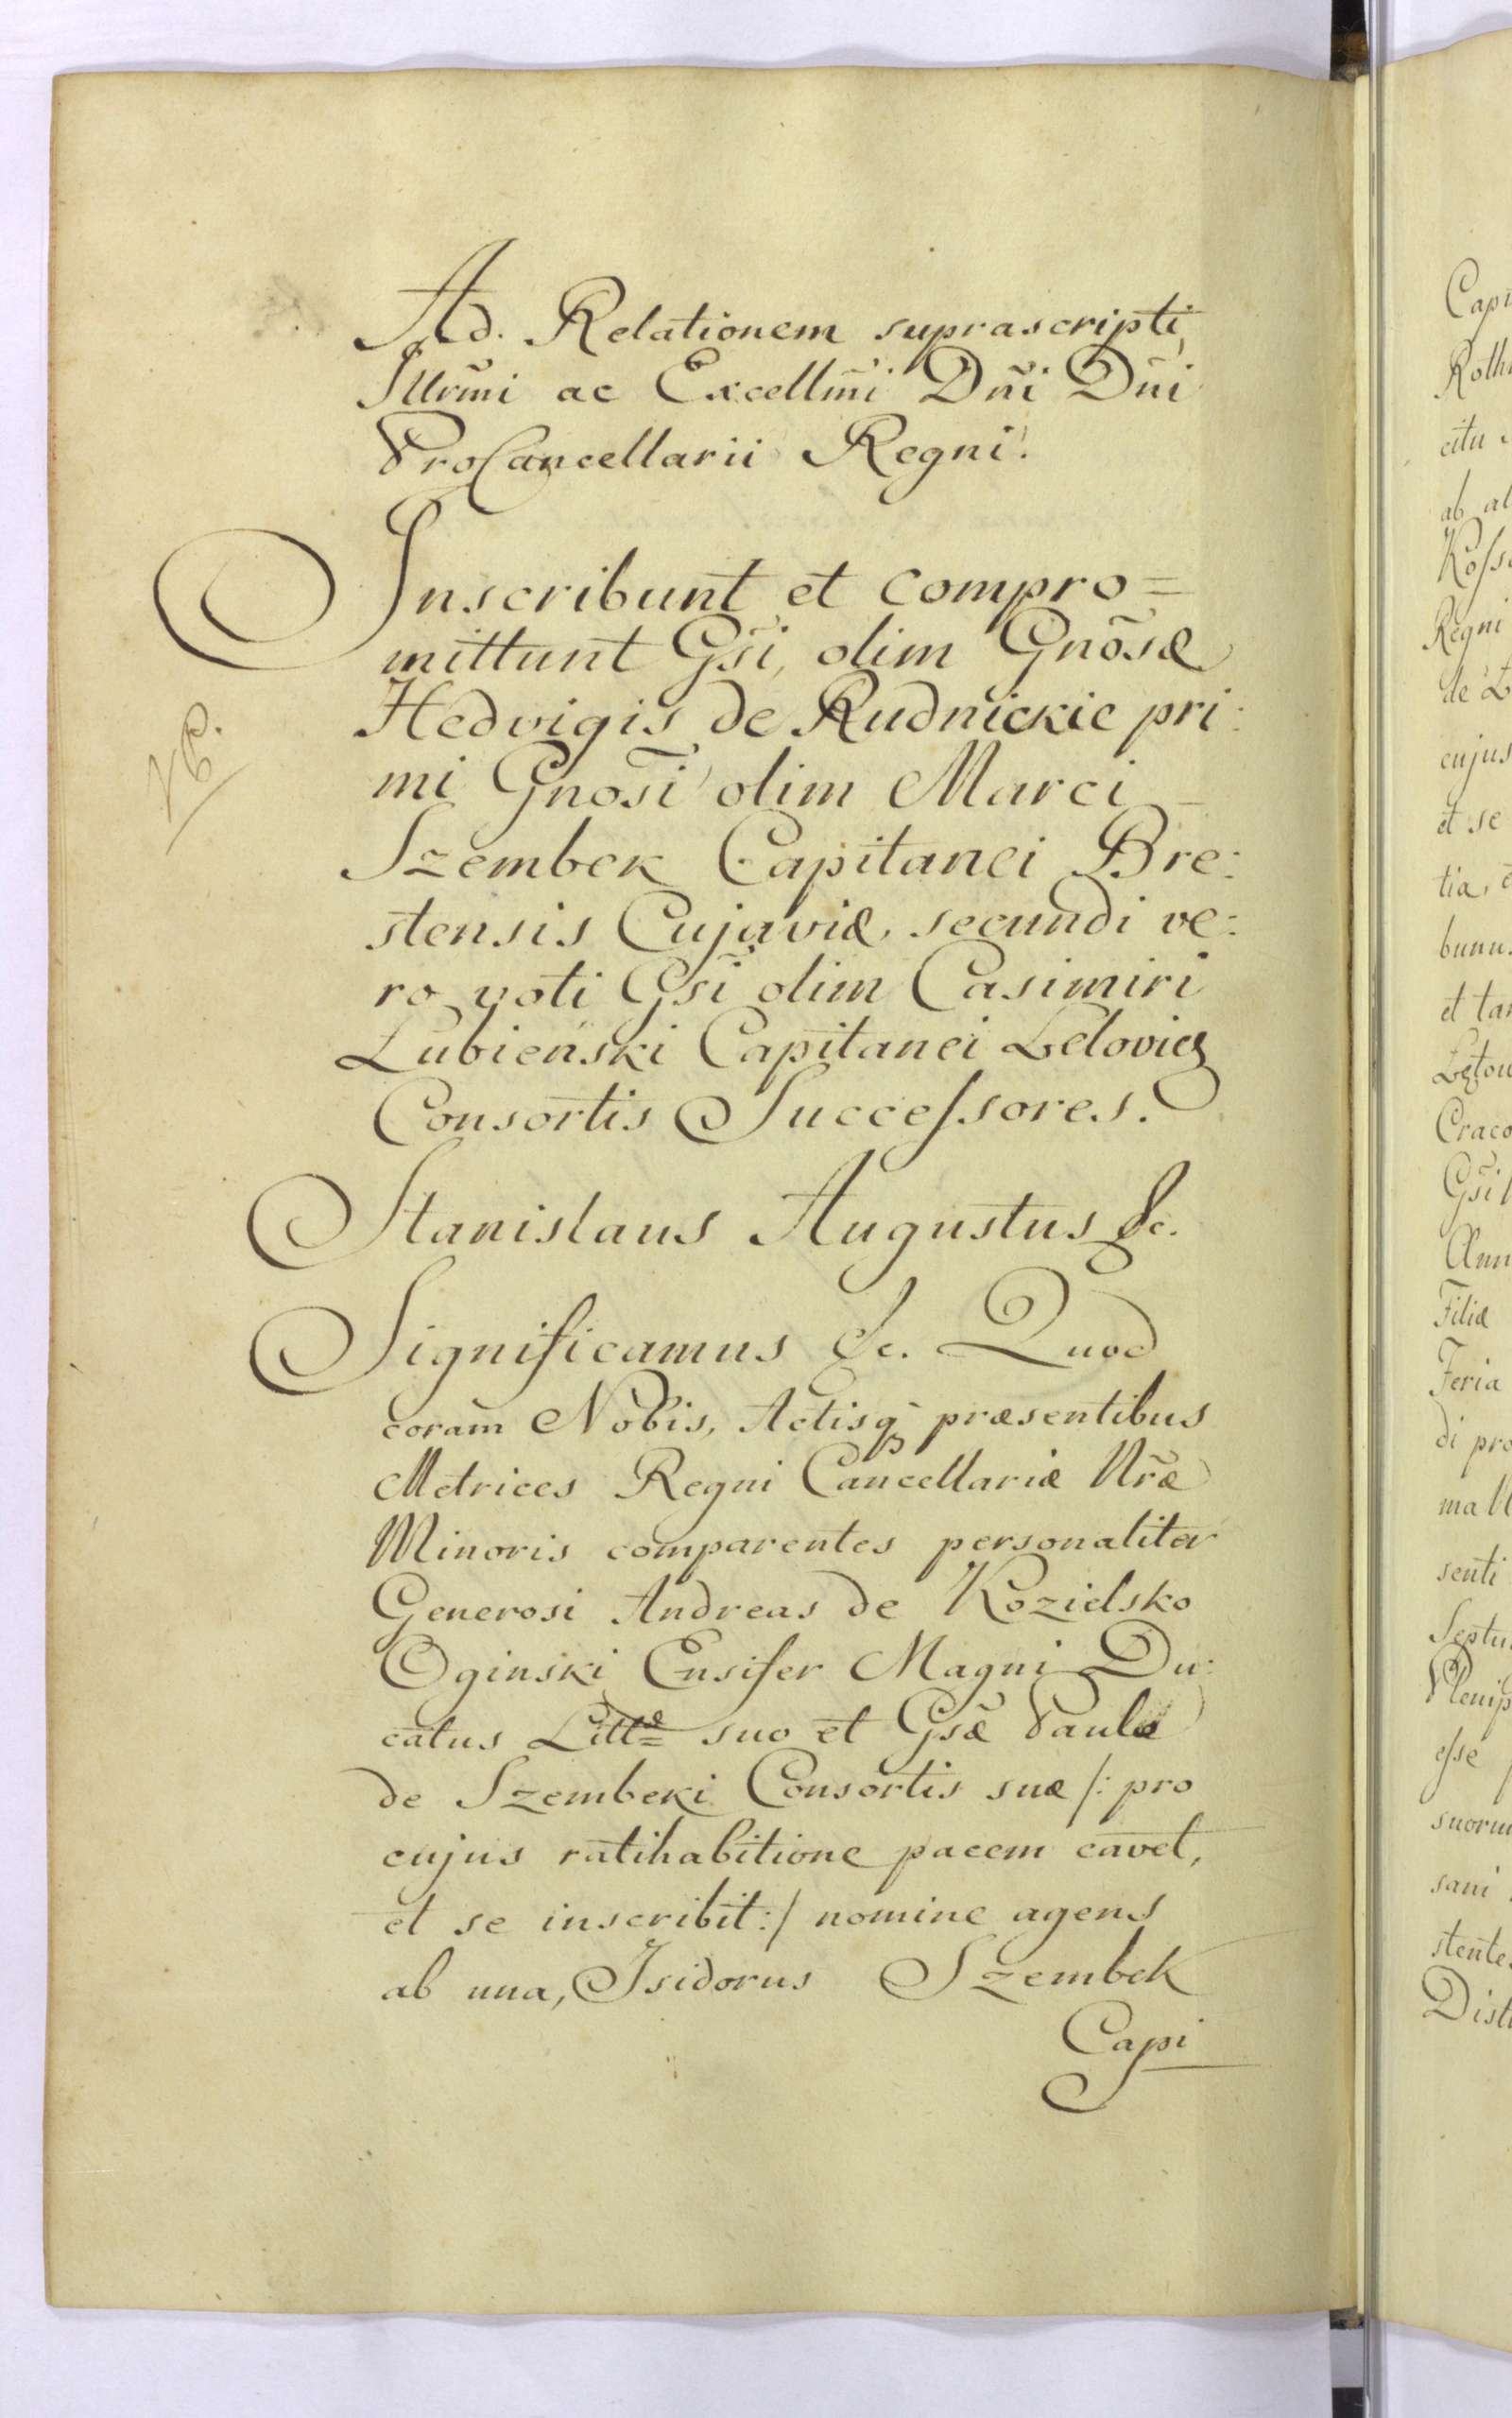 Ad. Relationem suprascripti,
Illrm̃i ac Excellm̃i Dñi Dñi
ProCancellarii Regni.
Inscribunt et compro=
mittunt Gs̃i, olim Gnõsæ
Hedvigis de Rudnickie pri:
mi Gnosĩ olim Marci
Szembek Capitanei Bre:
stensis Cujaviæ, secundi ve:
ro voti Gsĩ olim Casimiri
Lubieński Capitanei Lelovien
Consortis Succeſsores.
Stanislaus Augustus &c.
Significamus &c. Quod
coram Nobis, Actisq₃ præsentibus
Metrices Regni Cancellariæ Nr̃æ
Minoris comparentes personaliter
Generosi Andreas de Kozielsko
Oginski Ensifer Magni Du:
catus Littæ suo et Gsæ̃ Paulæ
de Szembeki Consortis suæ /: pro
cujus ratihabitione pacem cavet,
et se inscribit :/ nomine agens
ab una, Isidorus Szembek
Capi
Capi
Roth
citu
ab al
Koſs
Regni
de
cujus
et se
tia,
bunu
et tan
Craco
Gs̃i
Ann
Filiæ
Feria
di pro
ma
senti
Septu
Plenip
eſse
suorum
sani
stente
Dist